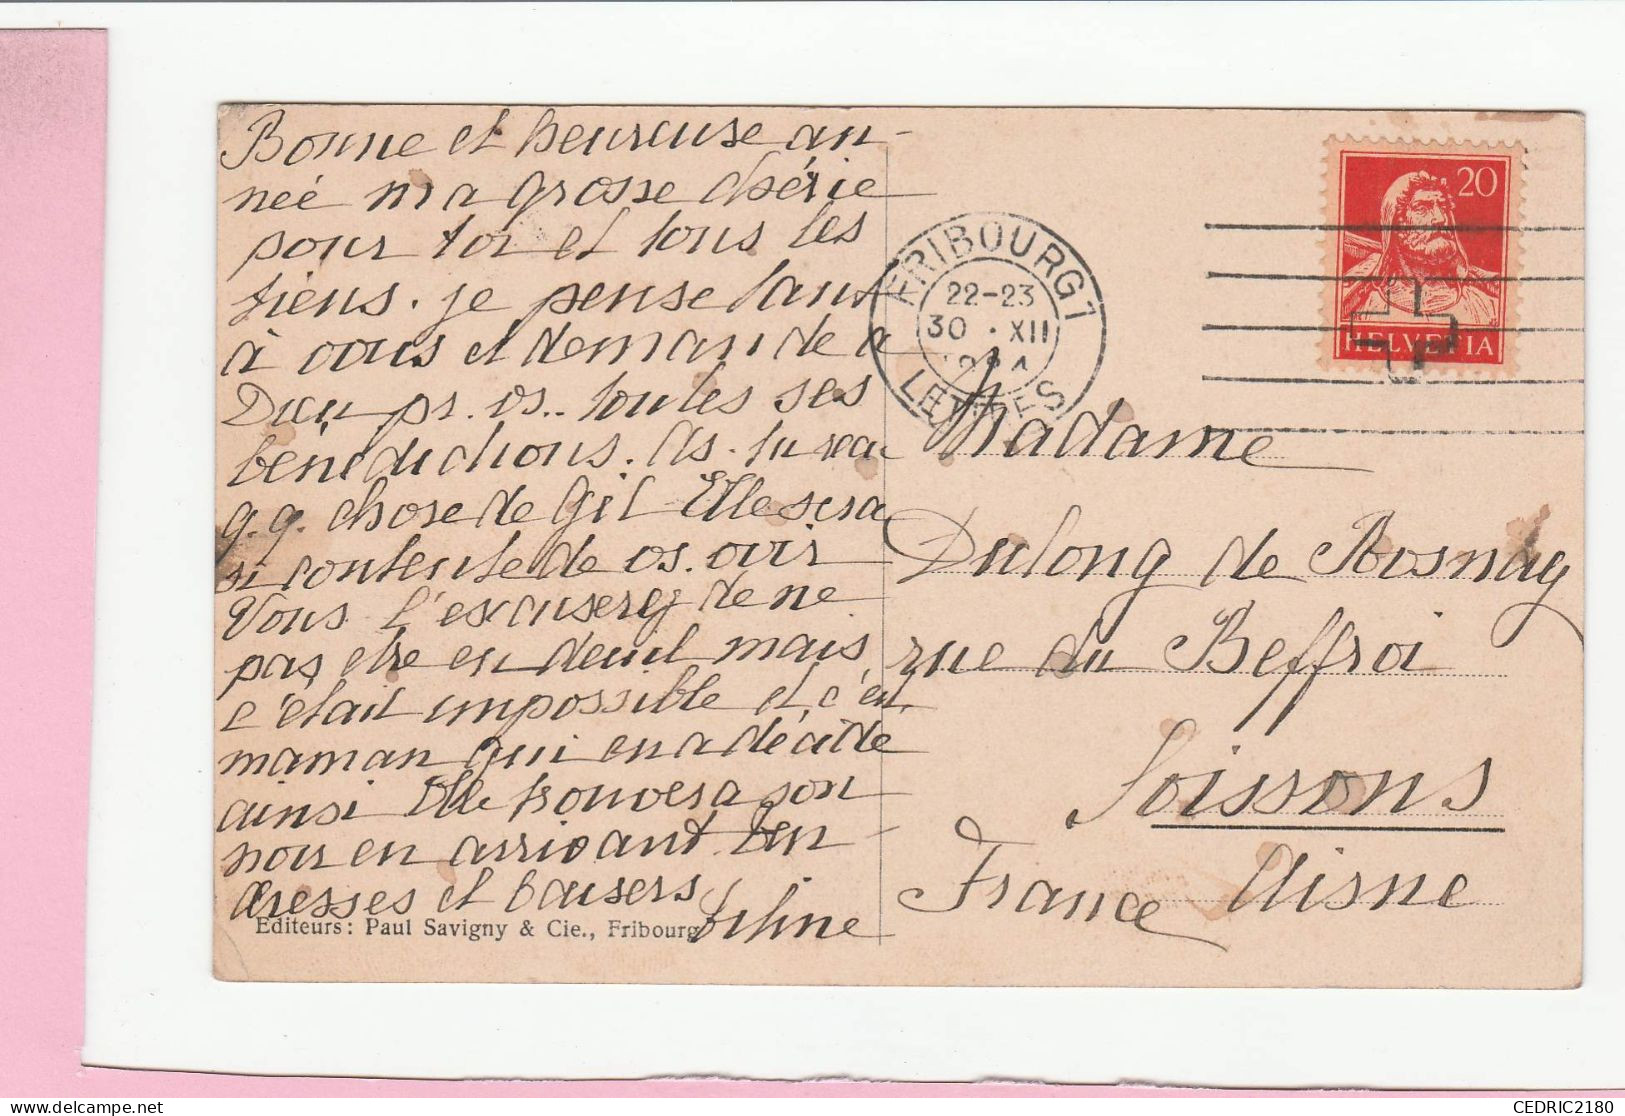 Bonne et heureuse an-
née ma grosse chérie
pour toi et tous les
tiens. je pense tant
à vous et demande à
Dieu pr. vs.. toutes ses
bénédictions. As-tu reçu
q.q. chose de Gil Elle sera
si contente de vs. voir
Vous l'excuserez de ne
pas etre en deuil mais
c'était impossible et c'est
maman qui en a décidé
ainsi Elle trouvera son
noir en arrivant. Ten-
dresses et baisers
Editeurs: Paul Savigny & Cie., Fribourg
FRIBOURG 1
22-23
30 · XII
LETTRES
20
HELVETIA
Madame
Dulong de Rosnay
rue du Beffroi
Soissons
Aisne
France
CEDRIC2180